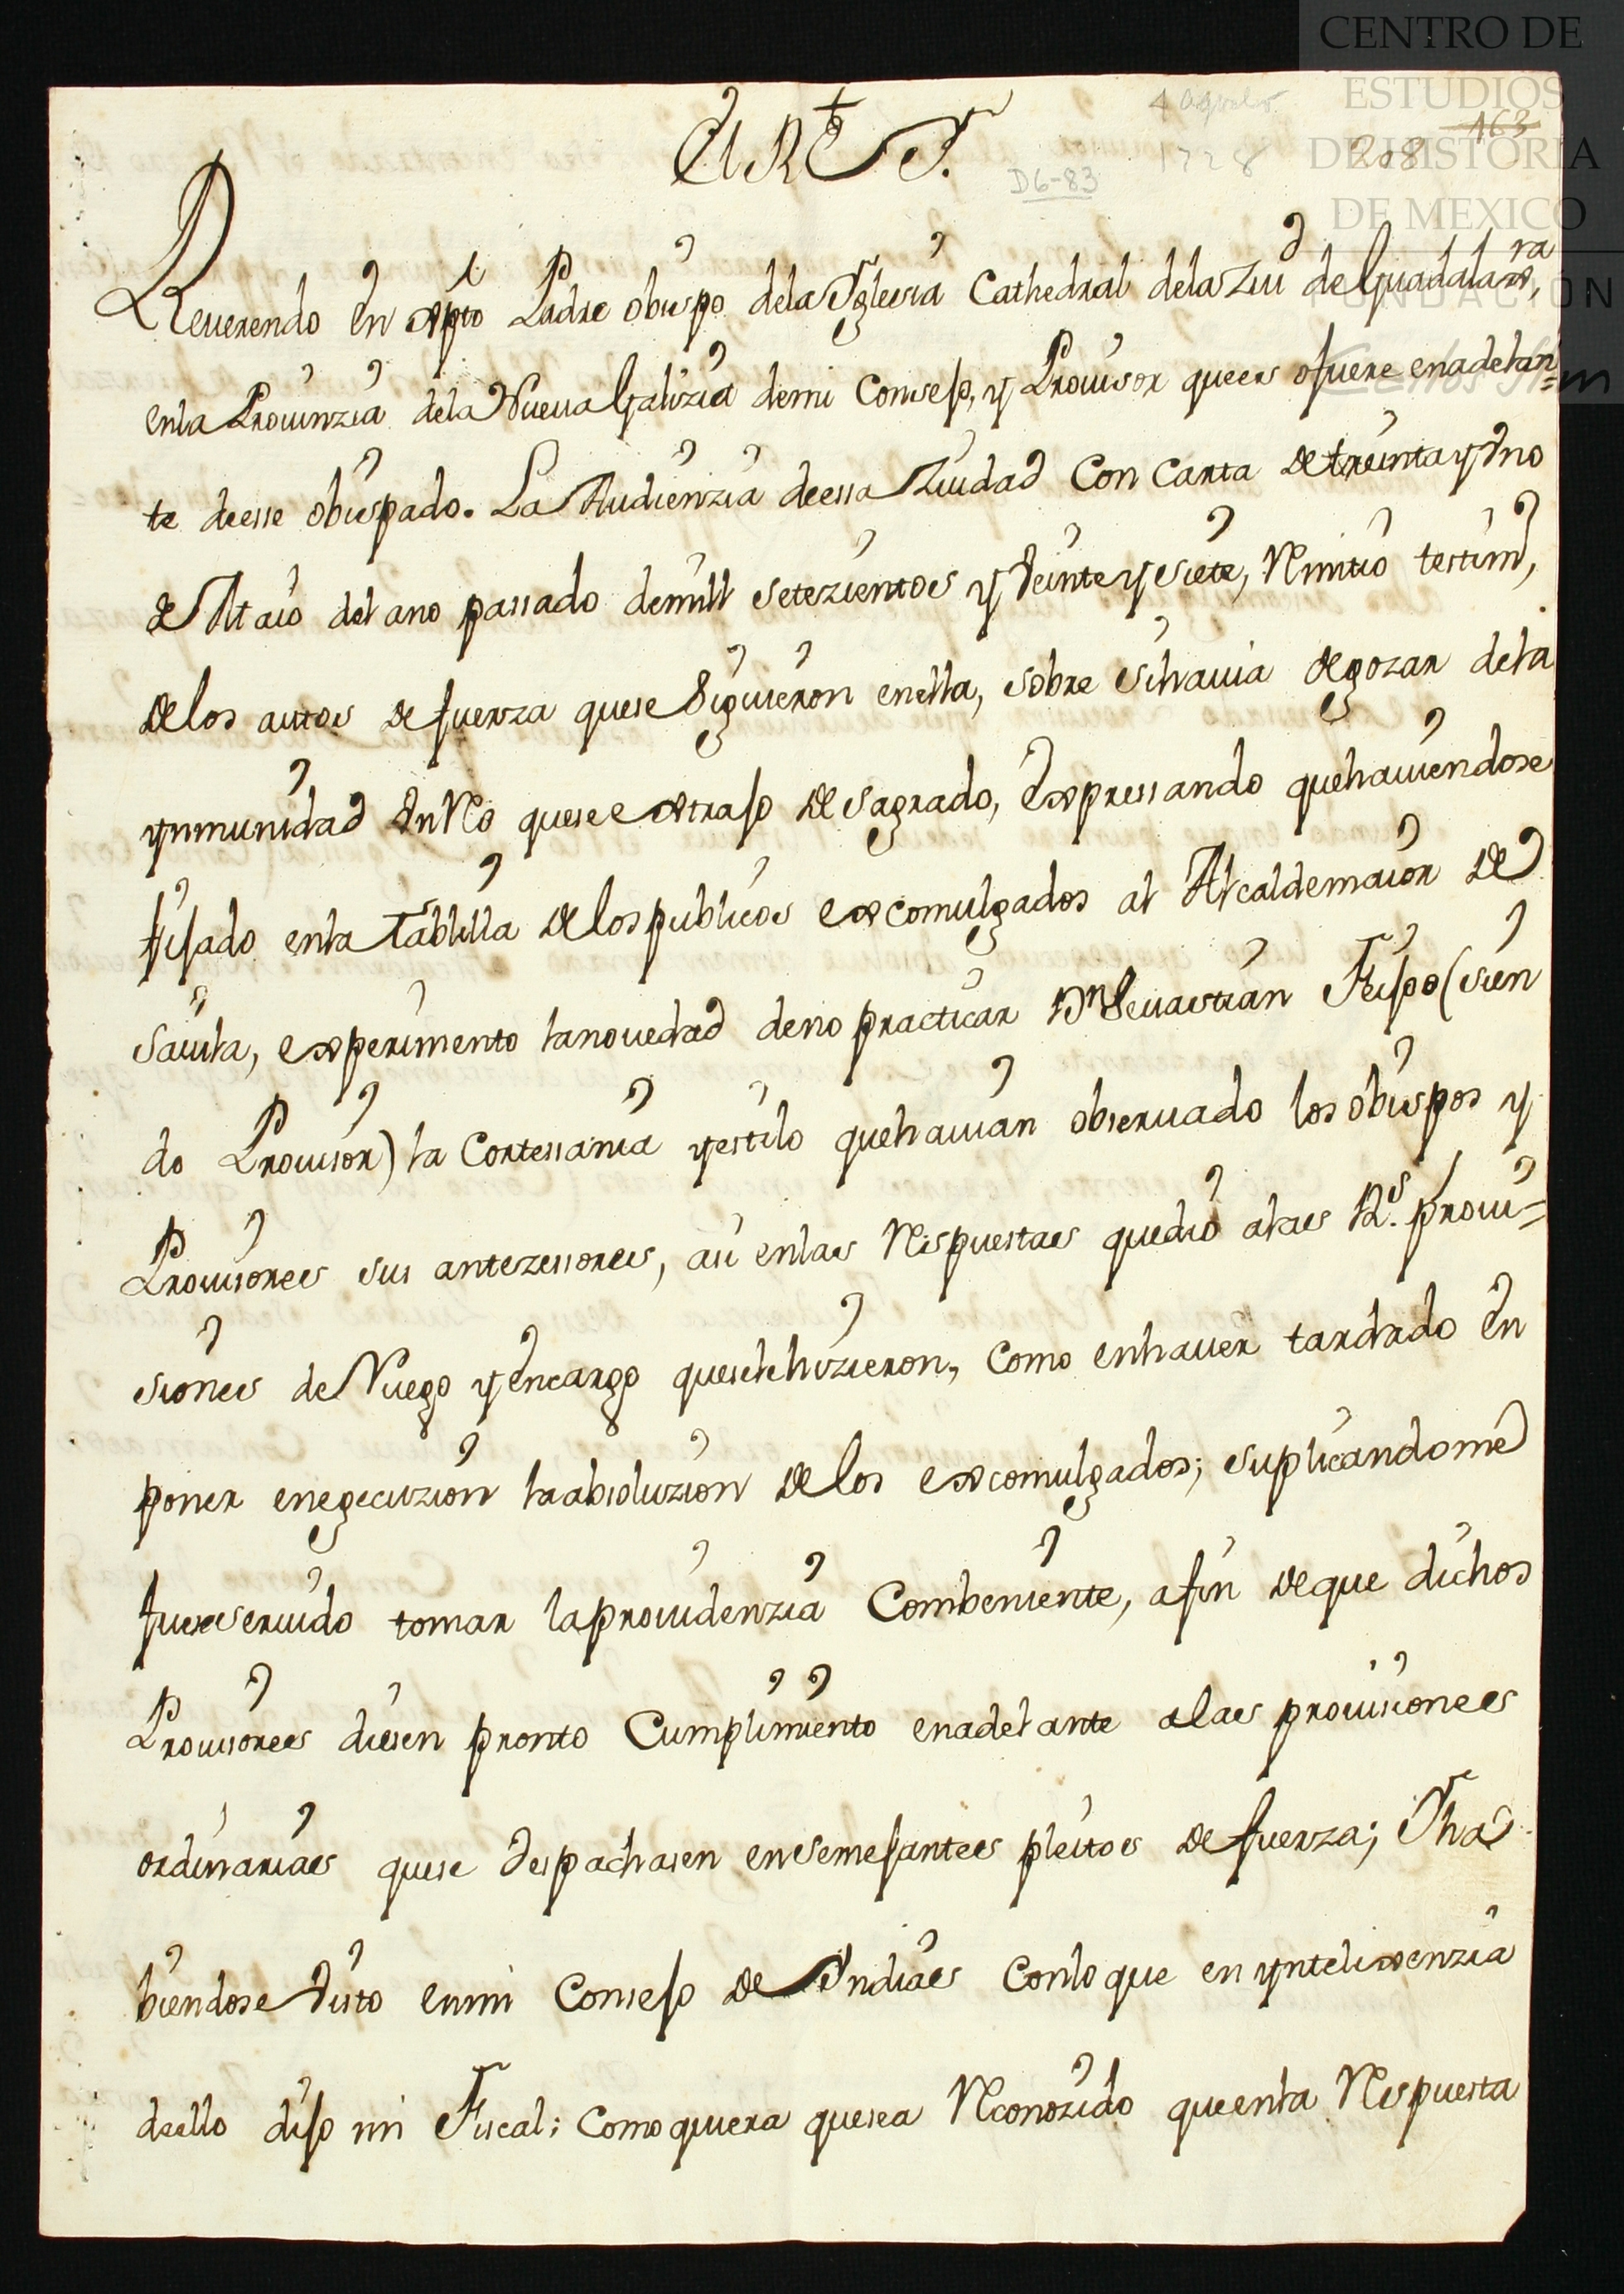 CENTRO DE
ESTUDIOS
DE HISTORIA
DE MEXICO
FUNDACION
Carlos Slim
4 agosto
1728
163
208
D6-83
El Rey
Reuerendo en xpto Padre obispo de la Yglesia Cathedral de la Ziud de Guadalaxra,
en la Prouinzia de la Nueua Galizia de mi Consejo, y Prouisor que es o fuere en adelan=
te de esse obispado. La Audienzia de essa Ziudad con carta de treinta y Vno
de Maio del ano passado de mill setezientos y Veinte y siete, Remitio testimo,
de los autos de fuerza que se siguieron en ella, sobre si hauia de gozar de la
ynmunidad Vn Reo que se extrajo de sagrado, Expressando que hauiendose
fijado en la Tablilla de los publicos excomulgados al Alcalde maior de
Saiula, experimento la nouedad de no practicar Dn Seuastian Feijoo (sien
do Prouisor) la Cortessania y estilo que hauian obseruado los obispos y
Prouisores sus antezessores, asi en las Respuestas que dio a las Rs. proui=
siones de Ruego y Encargo que se le hizieron, como en hauer tardado En
poner en egecuzion la absoluzion de los excomulgados; suplicandome
fuese seruido tomar la prouidenzia Combeniente, a fin de que dichos
Prouisores diesen pronto Cumplimiento en adelante a las prouisiones
ordinarias que se despachasen en semejantes pleitos de fuerza; Y ha
biendose Visto en mi Consejo de Yndias con lo que en yntelixenzia
de ello dijo mi Fiscal; como quiera que sea Reconozido que en la Respuesta